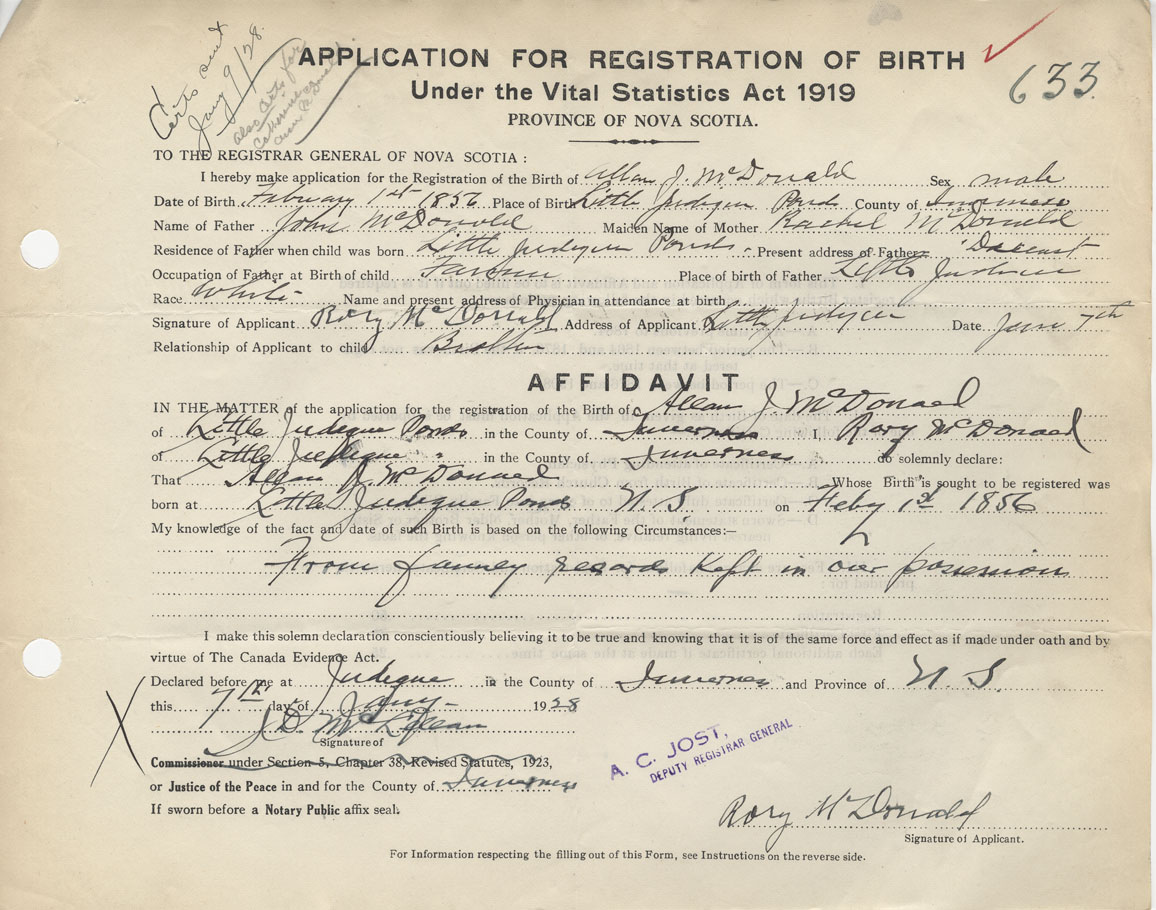 Certs out
Jany 9/28.
also certs for
Catherine &
Ann McDonald
APPLICATION FOR REGISTRATION OF BIRTH
633
Under the Vital Statistics Act 1919
PROVINCE OF NOVA SCOTIA.
TO THE REGISTRAR GENERAL OF NOVA SCOTIA :
I hereby make application for the Registration of the Birth of Allan J. McDonald Sex male
Date of Birth February 1st 1856 Place of Birth Little Judique Ponds County of Inverness
Name of Father John McDonald Maiden Name of Mother Rachel McDonald
Residence of Father when child was born Little Judique Ponds. Present address of Father
Occupation of Father at Birth of child Farmer Place of birth of Father Little Judique
Race White Name and present address of Physician in attendance at birth
Signature of Applicant Rory McDonald Address of Applicant Little Judique Date Jany 7th
Relationship of Applicant to child Brother
AFFIDAVIT
IN THE MATTER of the application for the registration of the Birth of Allan J. McDonald
of Little Judique Ponds in the County of Inverness I, Rory McDonald
of Little Judique " in the County of Inverness do solemnly declare:
That Allan J. McDonald Whose Birth is sought to be registered was
born at Little Judique Ponds N. S. on Feby 1st 1856
My knowledge of the fact and date of such Birth is based on the following Circumstances:—
From family records Kept in our possession
I make this solemn declaration conscientiously believing it to be true and knowing that it is of the same force and effect as if made under oath and by
virtue of The Canada Evidence Act.
Declared before me at Judique in the County of Inverness and Province of N. S.
this 7th day of Jany 1928
J. D. McLellan
Signature of
Commissioner under Section 5, Chapter 38, Revised Statutes, 1923,
or Justice of the Peace in and for the County of Inverness
If sworn before a Notary Public affix seal.
A. C. JOST,
DEPUTY REGISTRAR GENERAL
Rory McDonald
Signature of Applicant.
For Information respecting the filling out of this Form, see Instructions on the reverse side.